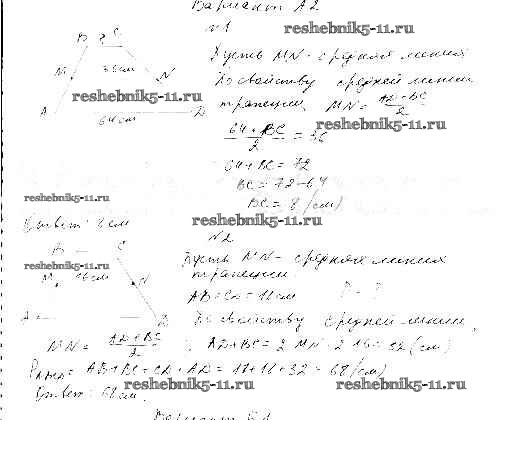 Вариант А2
№1
B ? C
Пусть MN - средняя линия
M 36 см N
По свойству средней линии
трапеции MN = AD+BC/2
A 64 см D
64 + BC / 2 = 36
64 + BC = 72
BC = 72 - 64
BC = 8 (см)
Ответ: 8 см
№2
B C
Пусть MN - средняя линия
трапеции
M 16 см N
AB = CD = 18 см P - ?
A D
По свойству средней линии,
MN = AD + BC / 2 , AD + BC = 2 MN = 2 16 = 32 (см)
= AB + BC + CD + AD = 18 + 18 + 32 = 68 (см)
Ответ: 68 см.
reshebnik5-11.ru
reshebnik5-11.ru
reshebnik5-11.ru
reshebnik5-11.ru
reshebnik5-11.ru
reshebnik5-11.ru
reshebnik5-11.ru
reshebnik5-11.ru